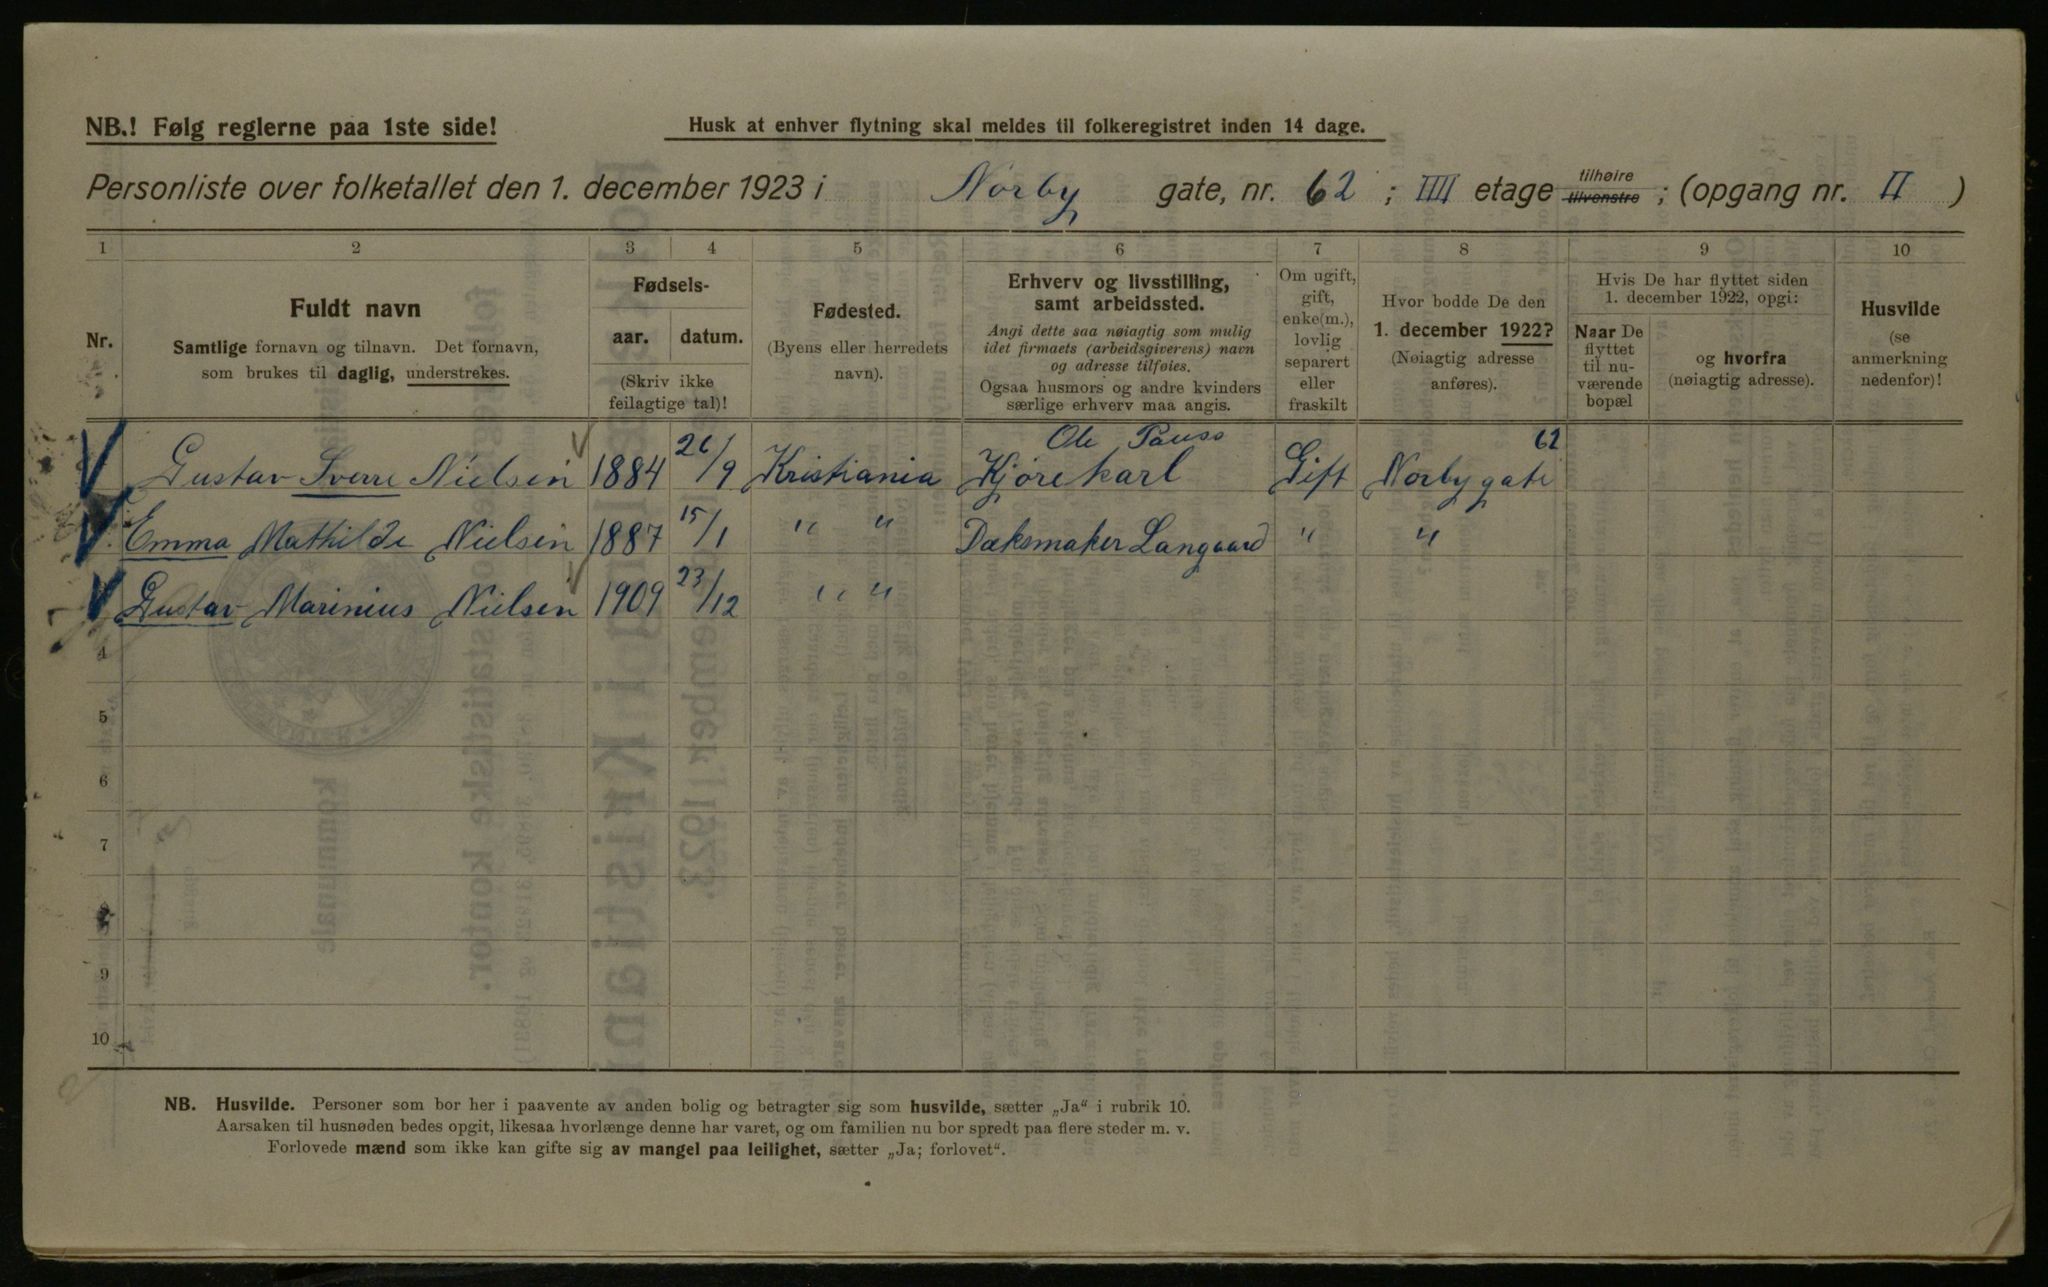 NB.! Følg reglerne paa 1ste side!
Husk at enhver flytning skal meldes til folkeregistret inden 14 dage.
Personliste over folketallet den 1. december 1923 i Norby gate, nr. 62 ; IIII etage tilhøire tilvenstre ; (opgang nr. II )
1 2 3 4 5 6 7 8 9 10
Nr.
Fuldt navn
Samtlige fornavn og tilnavn. Det fornavn,
som brukes til daglig, understrekes.
Fødsels-
aar. datum.
(Skriv ikke
feilagtige tal)!
Fødested.
(Byens eller herredets
navn).
Erhverv og livsstilling,
samt arbeidssted.
Angi dette saa nøiagtig som mulig
idet firmaets (arbeidsgiverens) navn
og adresse tilføies.
Ogsaa husmors og andre kvinders
særlige erhverv maa angis.
Om ugift,
gift,
enke(m.),
lovlig
separert
eller
fraskilt
Hvor bodde De den
1. december 1922?
(Nøiagtig adresse
anføres).
Hvis De har flyttet siden
1. december 1922, opgi:
Naar De
flyttet
til nu-
værende
bopæl
og hvorfra
(nøiagtig adresse).
Husvilde
(se
anmerkning
nedenfor)!
Ole Pauss 62
Gustav Sverre Nielsen 1884 26/9 Kristiania Kjørekarl Gift Norbygate
Emma Mathilde Nielsen 1887 15/1 " " Dæksmaker Langaard " "
Gustav Marinius Nielsen 1909 23/12 " "
4
5
6
7
8
9
10
NB. Husvilde. Personer som bor her i paavente av anden bolig og betragter sig som husvilde, sætter „Ja“ i rubrik 10.
Aarsaken til husnøden bedes opgit, likesaa hvorlænge denne har varet, og om familien nu bor spredt paa flere steder m. v.
Forlovede mænd som ikke kan gifte sig av mangel paa leilighet, sætter „Ja; forlovet“.